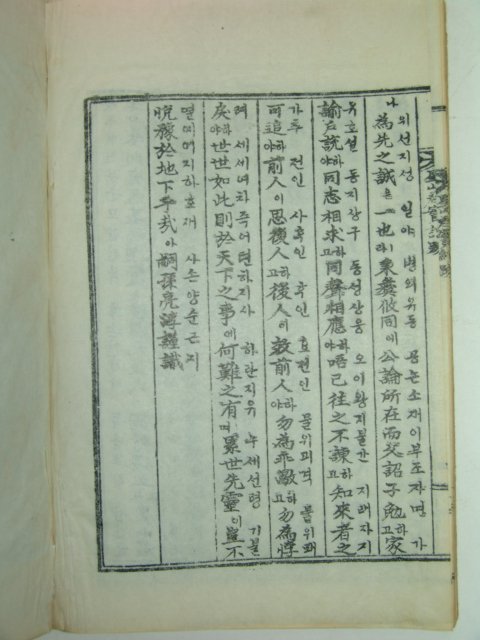 나 위선지성 일야 병의유동 공논소재이부조자면 가
為先之誠은 一也라 秉彛攸同에 公論所在而父詔子勉하고 家
유호설 동지상구 동성상응 오이왕지불간 지래자지
諭戶說하야 同志相求하고 同聲相應하야 唔已往之不諫하고 知來者之
가추 전인 사후인 후인 효전인 물위괴격 물위패
可追하야 前人이 思後人하고 後人이 效前人하야 勿為乖激하고 勿為悖
려 세세여차즉어텬하지사 하란지유 누세선령 기불
戾하야 世世如此則於天下之事에 何難之有며 累世先靈이 豈不
열예어지하호재 사손양순근지
悅豫於地下乎哉아 嗣孫亮淳謹識